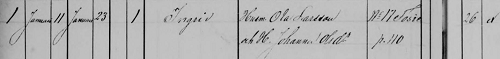 1 Januari 11 Januari 23 1 Ingrid Husm. Ola Larsson No 11 26 d
och H. Johanna Olsdr p. 110